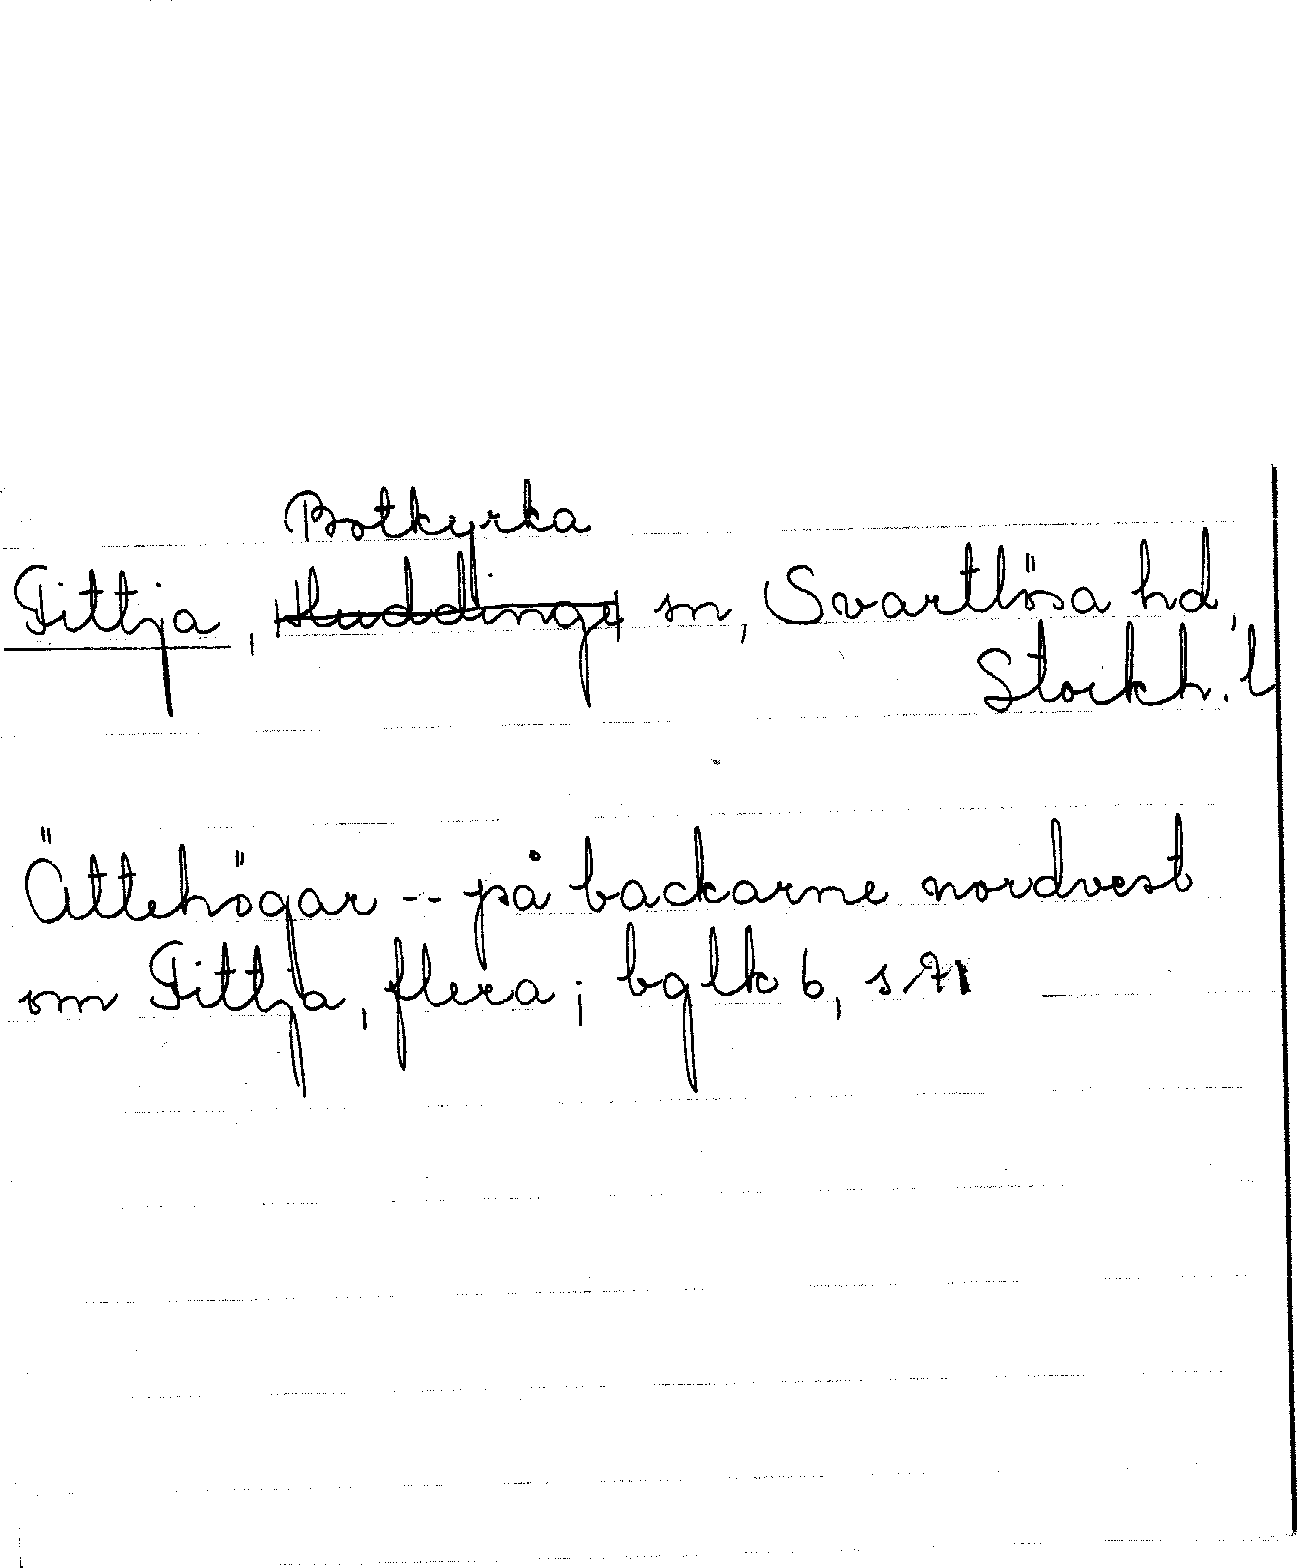 Botkyrka
Fittja, Huddinge sn, Svartlösa hd,
Stockh. l
Ättehögar -- på backarne nordvest
om Fittja, flera; bglk 6, s 71